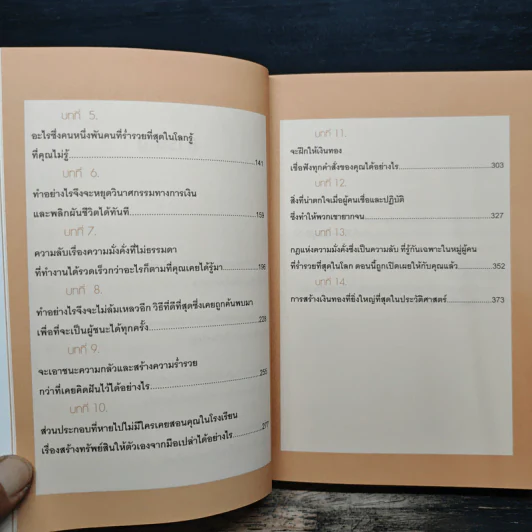 บทที่ 5.
อะไรซึ่งคนหนึ่งพันคนที่ร่ำรวยที่สุดในโลกรู้
ที่คุณไม่รู้.....141
บทที่ 6.
ทำอย่างไรจึงจะหยุดวินาศกรรมทางการเงิน
และพลิกผันชีวิตได้ทันที.....159
บทที่ 7.
ความลับเรื่องความมั่งคั่งที่ไม่ธรรมดา
ที่ทำงานได้รวดเร็วกว่าอะไรก็ตามที่คุณเคยได้รู้มา.....196
บทที่ 8.
ทำอย่างไรจึงจะไม่ล้มเหลวอีก วิธีที่ดีที่สุดซึ่งเคยถูกค้นพบมา
เพื่อที่จะเป็นผู้ชนะได้ทุกครั้ง.....228
บทที่ 9.
จะเอาชนะความกลัวและสร้างความร่ำรวย
กว่าที่เคยคิดฝันไว้ได้อย่างไร.....255
บทที่ 10.
ส่วนประกอบที่หายไปไม่มีใครเคยสอนคุณในโรงเรียน
เรื่องสร้างทรัพย์สินให้ตัวเองจากมือเปล่าได้อย่างไร.....277
บทที่ 11.
จะฝึกให้เงินทอง
เชื่อฟังทุกคำสั่งของคุณได้อย่างไร.....303
บทที่ 12.
สิ่งที่น่าตกใจเมื่อผู้คนเชื่อและปฏิบัติ
ซึ่งทำให้พวกเขายากจน.....327
บทที่ 13.
กฎแห่งความมั่งคั่งซึ่งเป็นความลับ ที่รู้กันเฉพาะในหมู่ผู้คน
ที่ร่ำรวยที่สุดในโลก ตอนนี้ถูกเปิดเผยให้กับคุณแล้ว.....352
บทที่ 14.
การสร้างเงินทองที่ยิ่งใหญ่ที่สุดในประวัติศาสตร์.....373